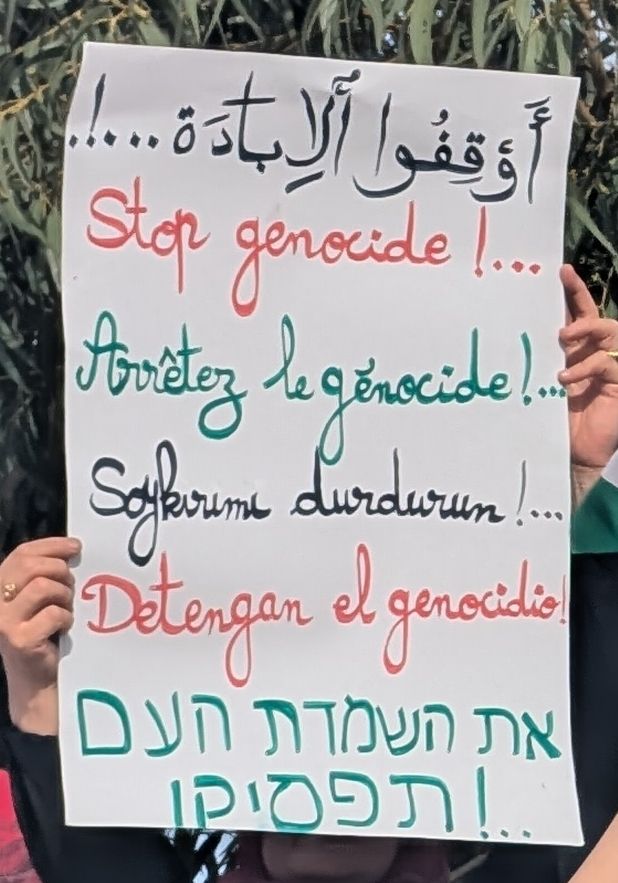 أَوْقِفُوا ألإِبادَة...!.
Stop genocide !...
Arrêtez le génocide !...
Soykırımı durdurun !...
Detengan el genocidio!
את השמדת העם
תפסיקו!...